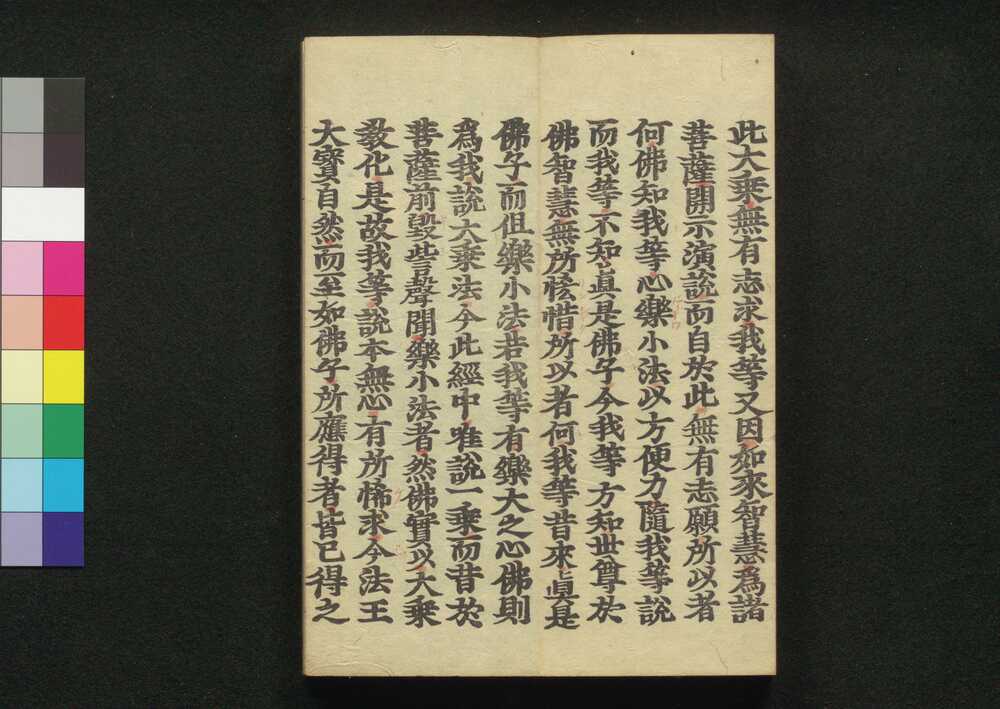 此大乘無有志求我等又因如來智慧爲諸
菩薩開示演說而自於此無有志願所以者
何佛知我等心樂小法以方便力隨我等說
而我等不知眞是佛子今我等方知世尊於
佛智慧無所悋惜所以者何我等昔來眞是
佛子而但樂小法若我等有樂大之心佛則
爲我說大乘法今此經中唯說一乘而昔於
菩薩前毀呰聲聞樂小法者然佛實以大乘
教化是故我等說本無心有所悕求今法王
大寶自然而至如佛子所應得者皆已得之